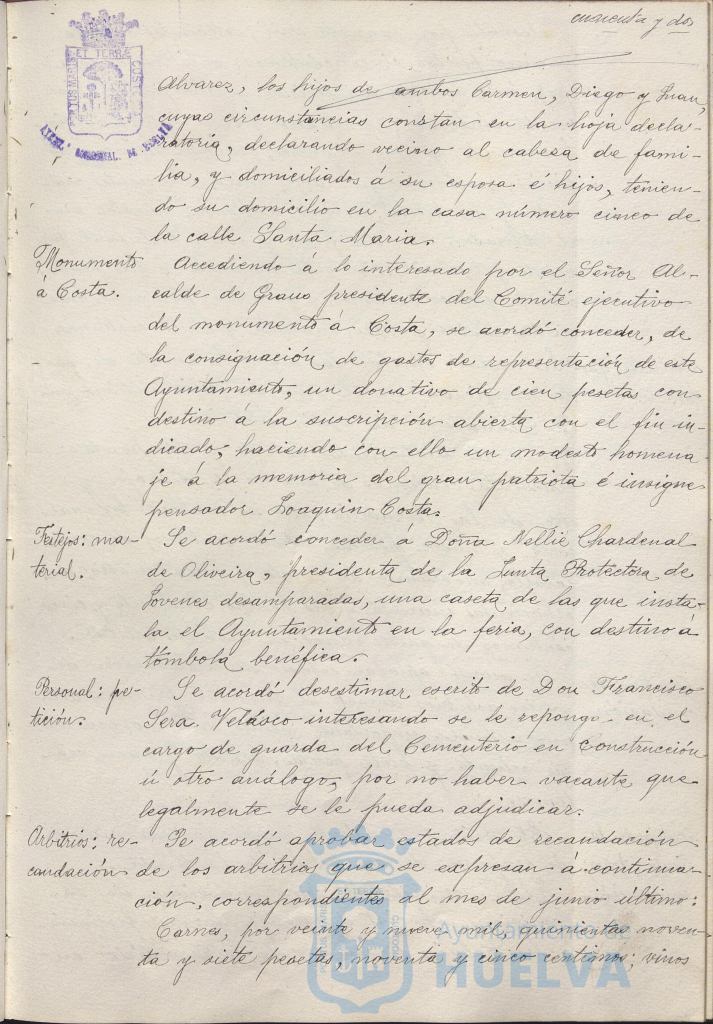 cuarenta y dos
PORTUS MARIS ET TERRÆ CUSTODIA
Alvarez, los hijos de ambos Carmen, Diego y Juan,
cuyas circunstancias constan en la hoja decla-
ratoria, declarando vecino al cabeza de fami-
lia, y domiciliados á su esposa é hijos, tenien-
do su domicilio en la casa número cinco de
la calle Santa Maria.
Monumento
á Costa.
Accediendo á lo interesado por el Señor Al-
calde de Graus presidente del Comité ejecutivo
del monumento á Costa, se acordó conceder, de
la consignación de gastos de representación de este
Ayuntamiento, un donativo de cien pesetas con
destino á la suscripción abierta con el fin in-
dicado, haciendo con ello un modesto homena-
je á la memoria del gran patriota é insigne
pensador Joaquin Costa.
Festejos: ma-
terial.
Se acordó conceder á Doña Nellie Chardenal
de Oliveira, presidenta de la Junta Protectora de
Jovenes desamparadas, una caseta de las que insta-
la el Ayuntamiento en la feria, con destino á
tómbola benéfica.
Personal: pe-
tición.
Se acordó desestimar escrito de Don Francisco
Sera Velásco interesando se le repongo en el
cargo de guarda del Cementerio en construcción
ú otro análogo, por no haber vacante que
legalmente se le pueda adjudicar.
Arbitrios: re-
caudación
Se acordó aprobar estados de recaudación
de los arbitrios que se expresan á continua-
ción, correspondientes al mes de junio último:
Carnes, por veinte y nueve mil, quinientas noven-
ta y siete pesetas, noventa y cinco centimos; vinos
Ayuntamiento de
HUELVA